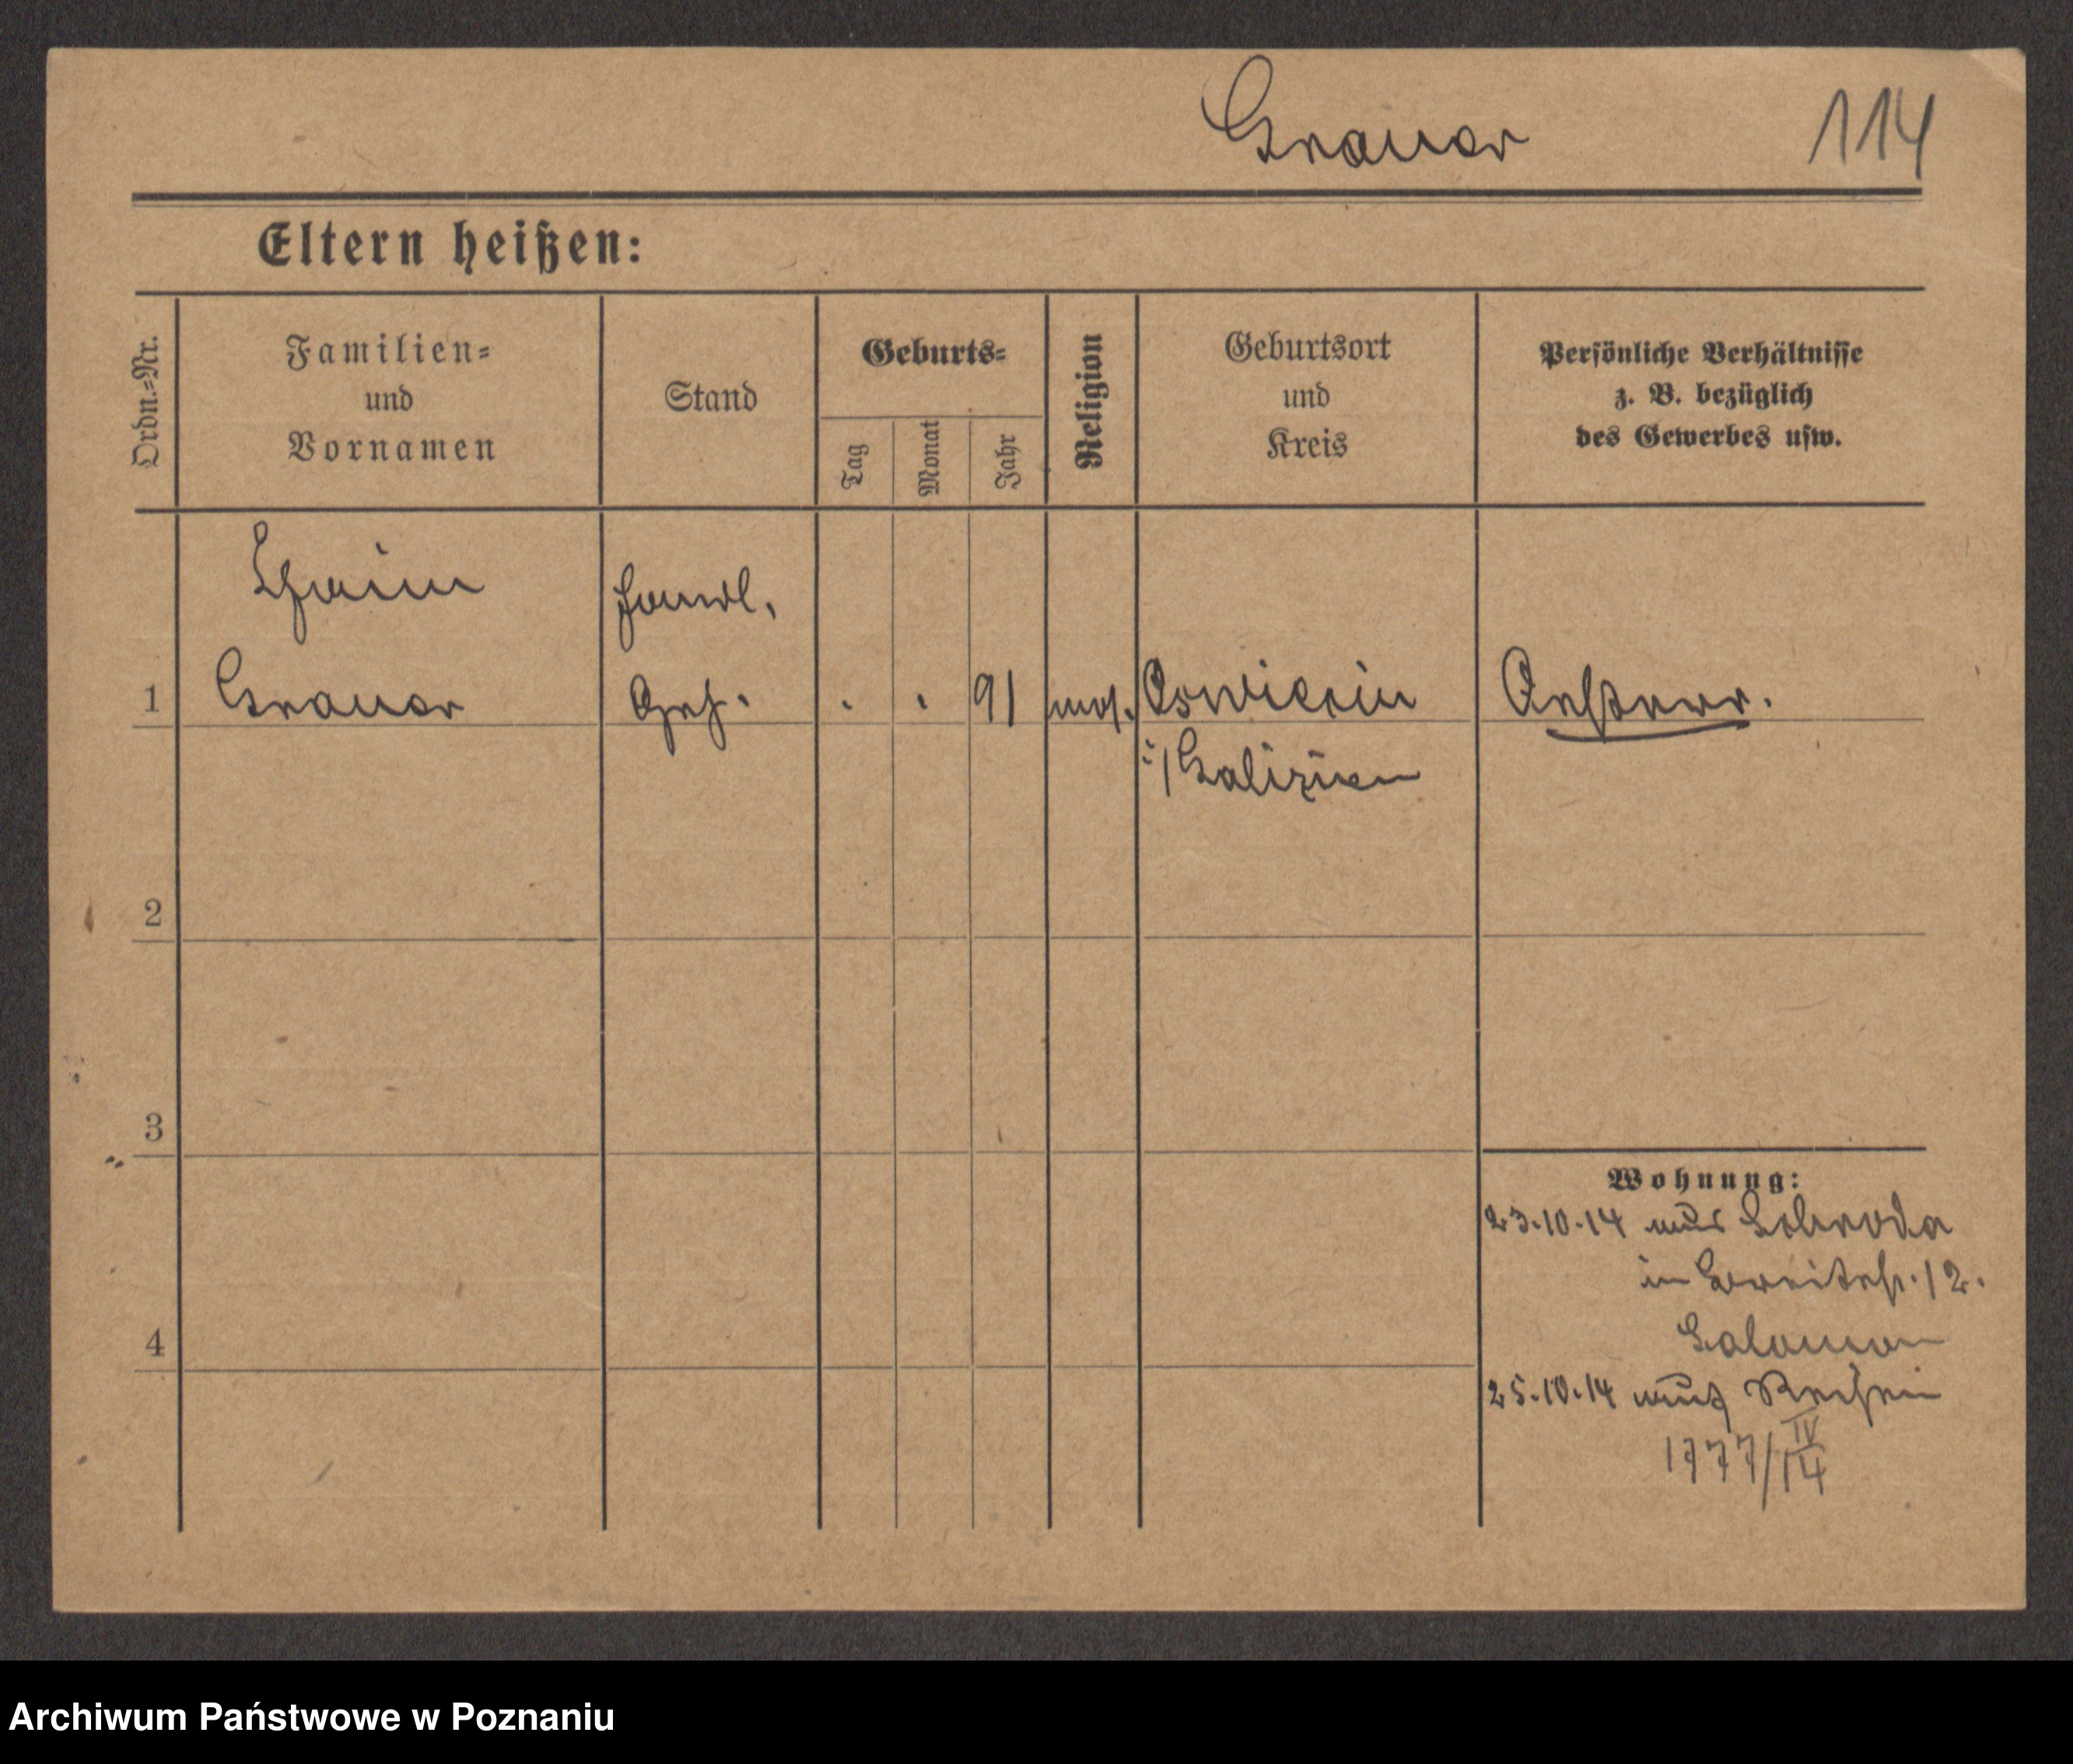 Grauer 114
Eltern heißen:
Ordn.=Nr.
Familien=
und
Vornamen
Stand
Geburts=
Tag
Monat
Jahr
Religion
Geburtsort
und
Kreis
Persönliche Verhältnisse
z. B. bezüglich
des Gewerbes usw.
Chaim
Handl.
1 Grauer Geh. . . 91 mos. Oswiecin Oesterr.
i/Galizien
2
3
Wohnung:
23.10.14 aus Schroda
in Breitestr. 12.
Salomon
4
25.10.14 nach Reisen
1777/IV 14
Archiwum Państwowe w Poznaniu